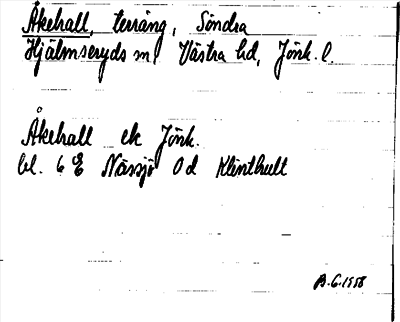 Åkehall, terräng, Södra
Hjälmseryds sn, Västra hd, Jönk. l.
Åkehall ek Jönk.
bl. 6 E Nässjö 0 d Klinthult
B.G. 1958